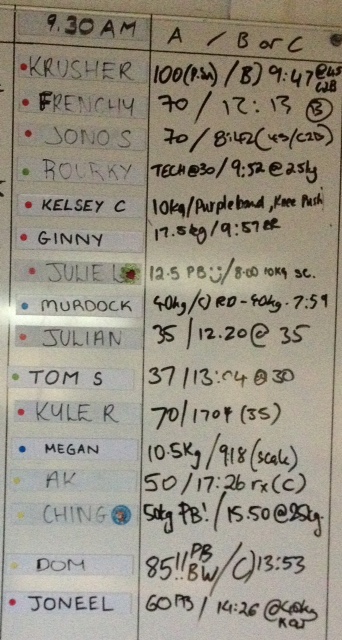 9.30 AM A / B or C
KRUSHER 100(P.Sn) / B) 9:47 @45 C2B
FRENCHY 70 / 12:13 (B)
JONO S 70 / 8:42 (43/C2B)
ROURKY TECH @30 / 9:52 @ 25kg
KELSEY C 10kg / Purple band, Knee Push
GINNY 17.5kg / 9:57
JULIE L 12.5 PB / 8:00 10kg sc.
MURDOCK 40kg / C) RD - 40kg. 7:59
JULIAN 35 / 12.20 @ 35
TOM S 37 / 13:04 @ 30
KYLE R 70 / 1704 (35)
MEGAN 10.5Kg / 918 (scale)
AK 50 / 17:26 rx (C)
CHING 50kg PB! / 15.50 @25kg.
DOM 85!! PB BW / C) 13:53
JONEEL 60 PB / 14:26